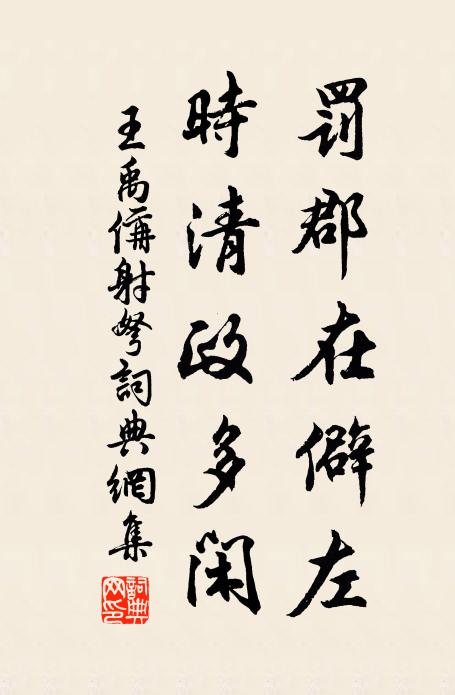 罰郡在僻左
時清政多閑
王禹偁射弩詞典網集
詞典網印